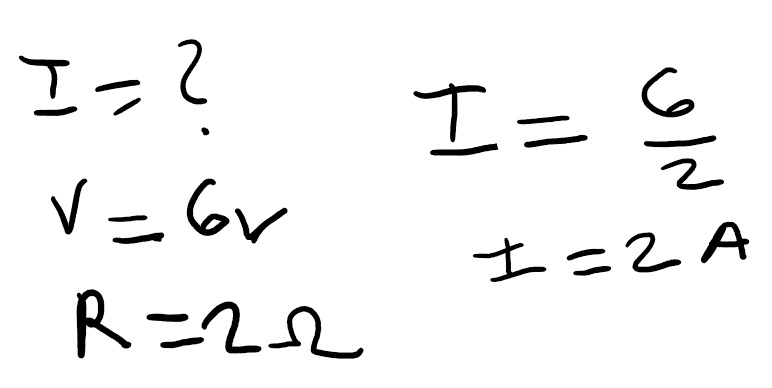 I = ?
V = 6v
R = 2Ω
I = 6/2
I = 2 A